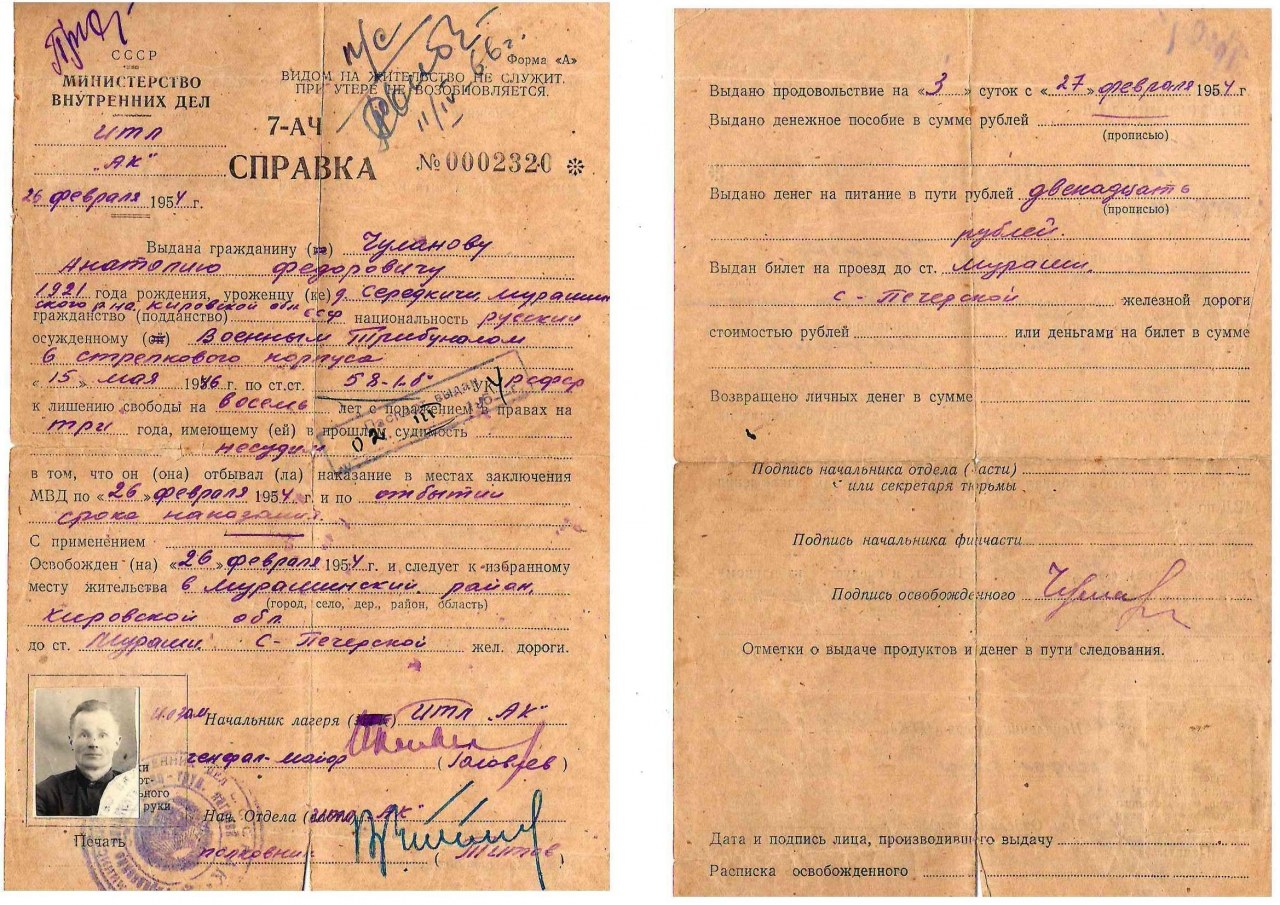 СССР
МИНИСТЕРСТВО
ВНУТРЕННИХ ДЕЛ
ИТЛ
"АК"
26 февраля 1954 г.
п/с
11/IV 66 г.
Форма «А»
ВИДОМ НА ЖИТЕЛЬСТВО НЕ СЛУЖИТ.
ПРИ УТЕРЕ НЕ ВОЗОБНОВЛЯЕТСЯ.
7-АЧ
СПРАВКА № 0002320 *
Выдана гражданину (ке) Чуланову
Анатолию Федоровичу
1921 года рождения, уроженцу (ке) д. Середкичи, Мурашин
ского р-на, Кировской обл.
гражданство (подданство) СССР национальность русский
осужденному (ой) Военным Трибуналом
6 стрелкового корпуса
« 15 » мая 1946 г. по ст.ст. 58-1-б" УК РСФСР
к лишению свободы на восемь лет с поражением в правах на
три года, имеющему (ей) в прошлом судимость
несудим
Паспорт выдан
02 III
в том, что он (она) отбывал (ла) наказание в местах заключения
МВД по «26» февраля 1954 г. и по отбытии
срока наказания.
С применением
Освобожден (на) «26» февраля 1954 г. и следует к избранному
месту жительства в Мурашинский район,
(город, село, дер., район, область)
Кировской обл
до ст. Мураши С-Печерской жел. дороги.
Начальник лагеря ИТЛ "АК"
генерал-майор ( Головлев )
Нач. Отдела ИТЛ "АК"
полковник ( Титов )
руки
Печать
Выдано продовольствие на «3» суток с «27» февраля 1954 г
Выдано денежное пособие в сумме рублей
(прописью)
Выдано денег на питание в пути рублей двенадцать
(прописью)
рублей.
Выдан билет на проезд до ст. Мураши,
С-Печерской железной дороги
стоимостью рублей или деньгами на билет в сумме
Возвращено личных денег в сумме
Подпись начальника отдела (части)
или секретаря тюрьмы
Подпись начальника финчасти
Подпись освобожденного
Отметки о выдаче продуктов и денег в пути следования.
Дата и подпись лица, производившего выдачу
Расписка освобожденного